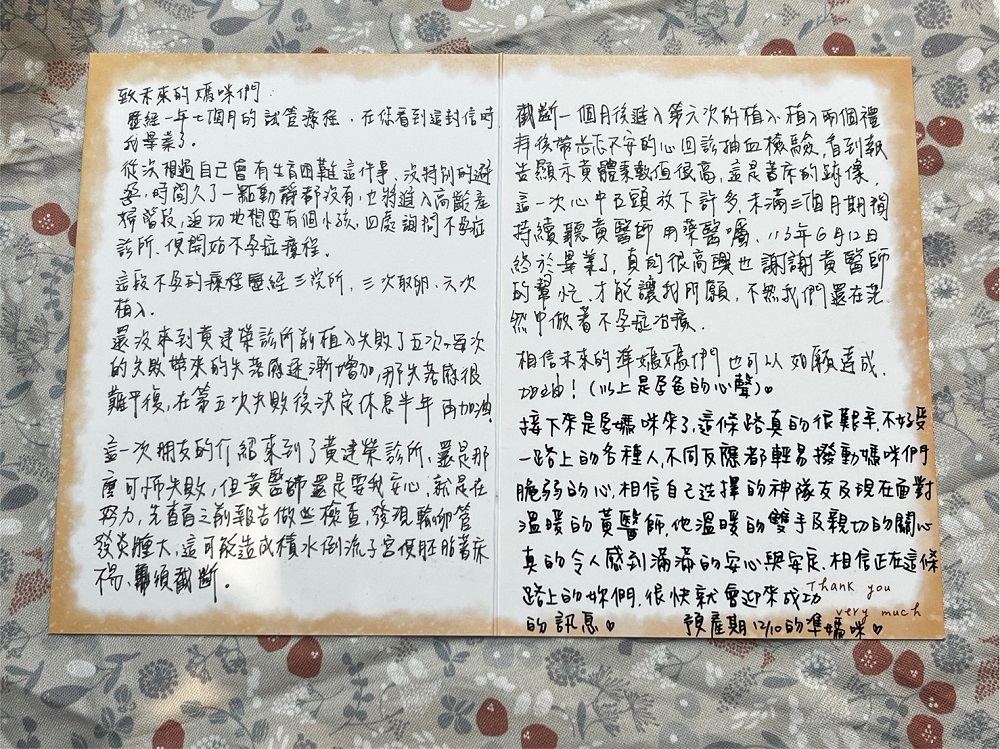 致未來的媽咪們：
歷經一年七個月的試管療程，在你看到這封信時
我畢業了。
從沒想過自己會有生育困難這件事、沒特別的避
孕，時間久了一點動靜都沒有，也將進入高齡產
婦階段，迫切地想要有個小孩，四處詢問不孕症
診所、便開始不孕症療程。
這段不孕的療程歷經三院所，三次取卵、六次
植入。
還沒來到黃建榮診所前植入失敗了五次，每次
的失敗帶來的失落感逐漸增加，那失落感很
難平復，在第五次失敗後決定休息半年再加油
這一次朋友的介紹來到了黃建榮診所，還是那
麼可怕失敗，但黃醫師還是要我安心，就是在
努力，先查看之前報告做些檢查，發現輸卵管
發炎腫大，這可能造成積水倒流子宮使胚胎著床
不易、需須截斷。
截斷一個月後進入第六次的植入，植入兩個禮
拜後帶忐忑不安的心回診抽血檢驗，看到報
告顯示黃體素數值很高，這是著床的跡像，
這一次心中石頭放下許多，未滿三個月期間
持續聽黃醫師用藥醫囑、113年6月12日
終於畢業了，真的很高興也謝謝黃醫師
的幫忙，才能讓我所願，不然我們還在茫
然中做著不孕症治療。
相信未來的準媽媽們也可以如願達成，
加油！(以上是爸爸的心聲)♡
接下來是媽咪來了，這條路真的很艱辛，不好受
一路上的各種人，不同反應都輕易撥動媽咪們
脆弱的心，相信自己选擇的神隊友及現在面對
溫暖的黃醫師，他溫暖的雙手及親切的關心
真的令人感到滿滿的安心與安定，相信正在這條
路上的妳們，很快就會迎來成功 Thank you
的訊息♡ 預產期12/10的準媽咪♡ very much